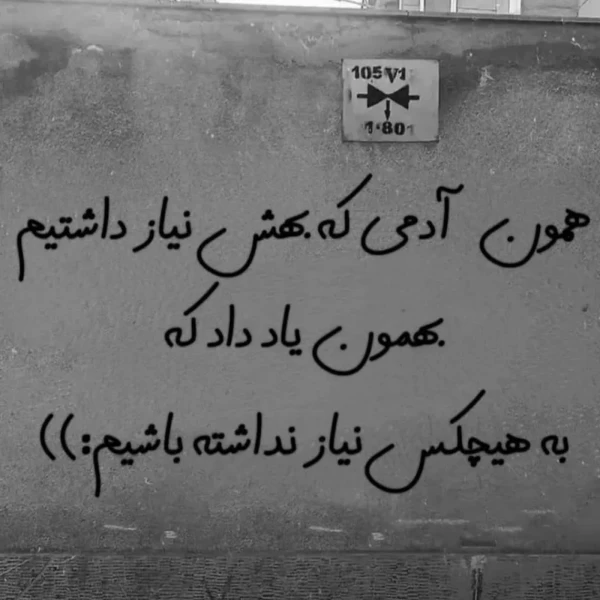 105 V1
1.801
همون آدمی که بهش نیاز داشتیم
بهمون یاد داد که
به هیچکس نیاز نداشته باشیم:))